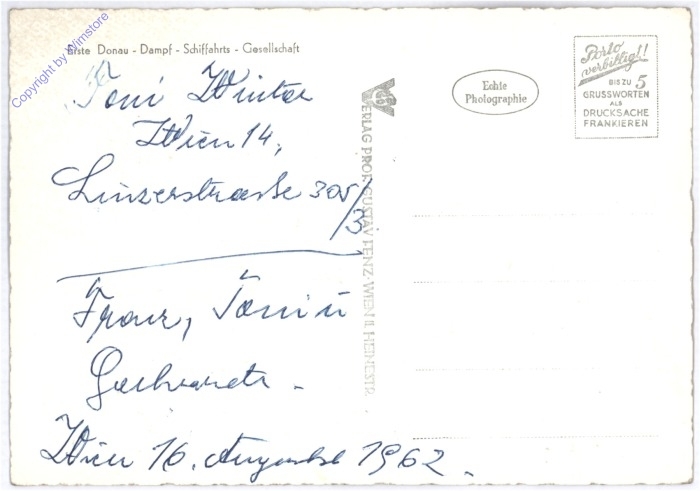 Copyright by Wimstore
Erste Donau - Dampf - Schiffahrts - Gesellschaft
Toni Winter
Wien 14,
Linzerstrasse 305/3
Franz, Toni u
Wien 16. Auguste 1962.
VERLAG PROF. GUSTAV FENZ·WIEN II. HEINESTR.
Echte
Photographie
Porto
verbilligt!!
BIS ZU 5
GRUSSWORTEN
ALS
DRUCKSACHE
FRANKIEREN